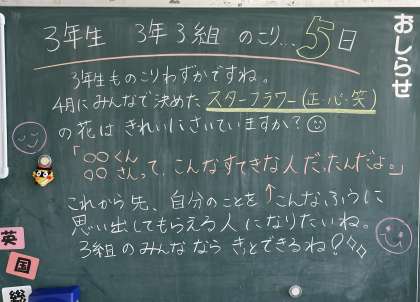 おしらせ
3年生 3年3組 のこり...5日
3年生ものこりわずかですね。
4月にみんなで決めた スターフラワー(正・心・笑)
の花は きれいにさいていますか?
「○○くん
○○さんって、こんなすてきな人だったんだよ。」
これから先、自分のことを↑こんなふうに
思い出してもらえる人になりたいね。
3組のみんなならきっとできるね?
英
国
総